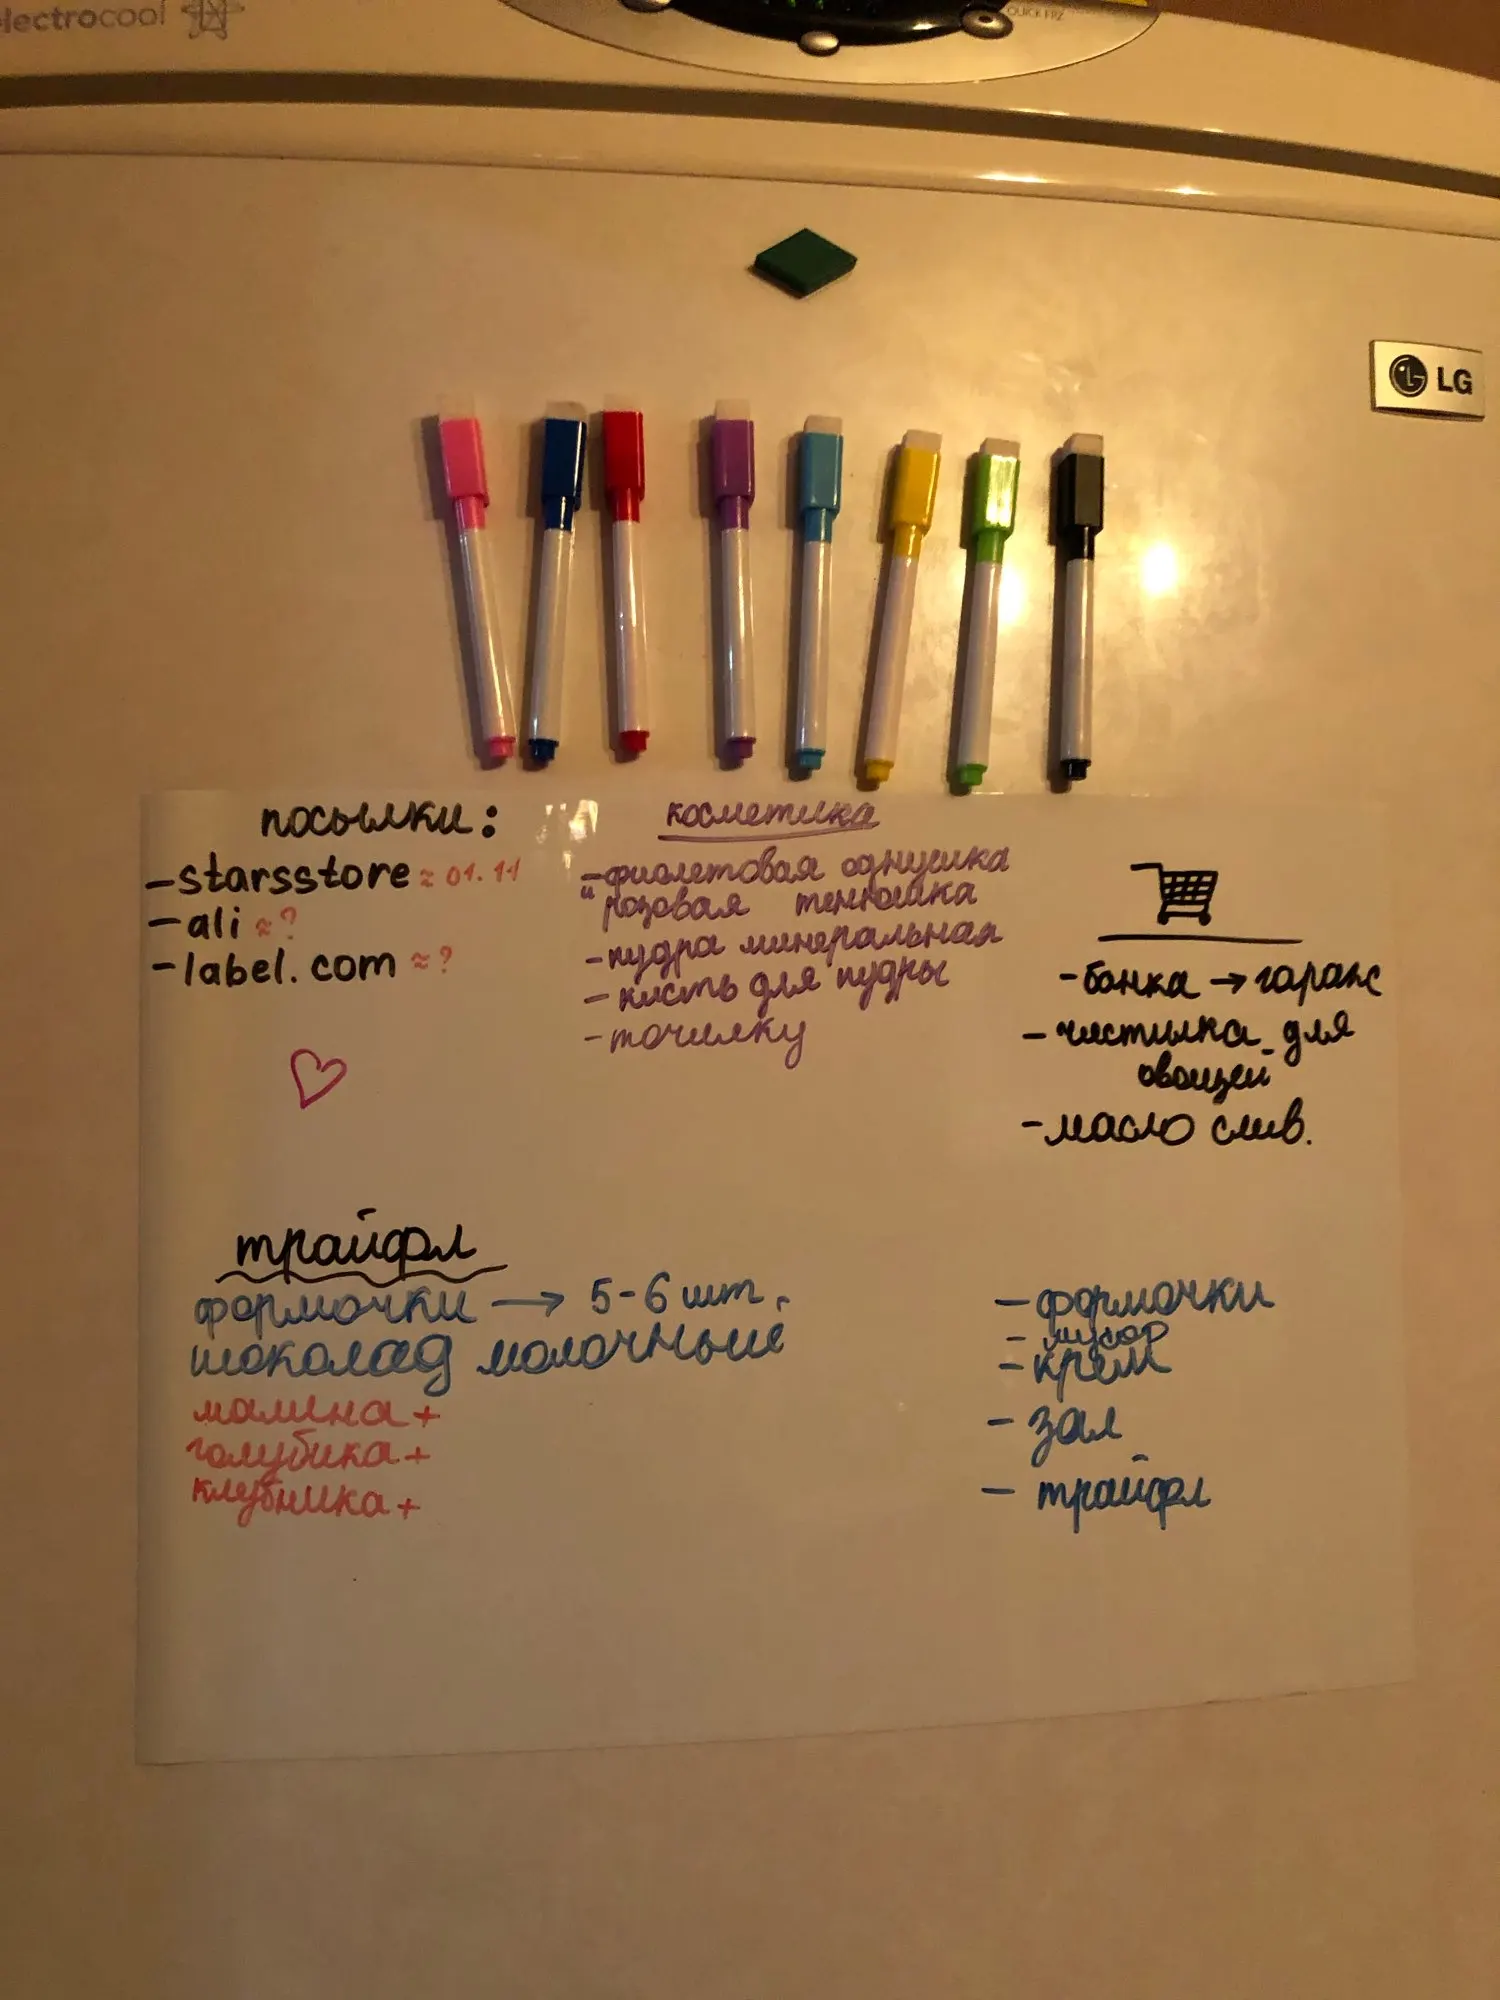 electrocool
QUICK FRZ
LG
посылки:
-starsstore ≈ 01.11
-ali ≈ ?
-label.com ≈ ?
косметика
-фиолетовая однушка
" розовая тенюшка
-пудра минеральная
- кисть для пудры
-точилку
-банка → гараж
-чистилка для
овощей
-масло слив.
трайфл
формочки → 5-6 шт.
шоколад молочный
малина +
голубика +
клубника +
- формочки
- мусор
- крем
- зал
- трайфл